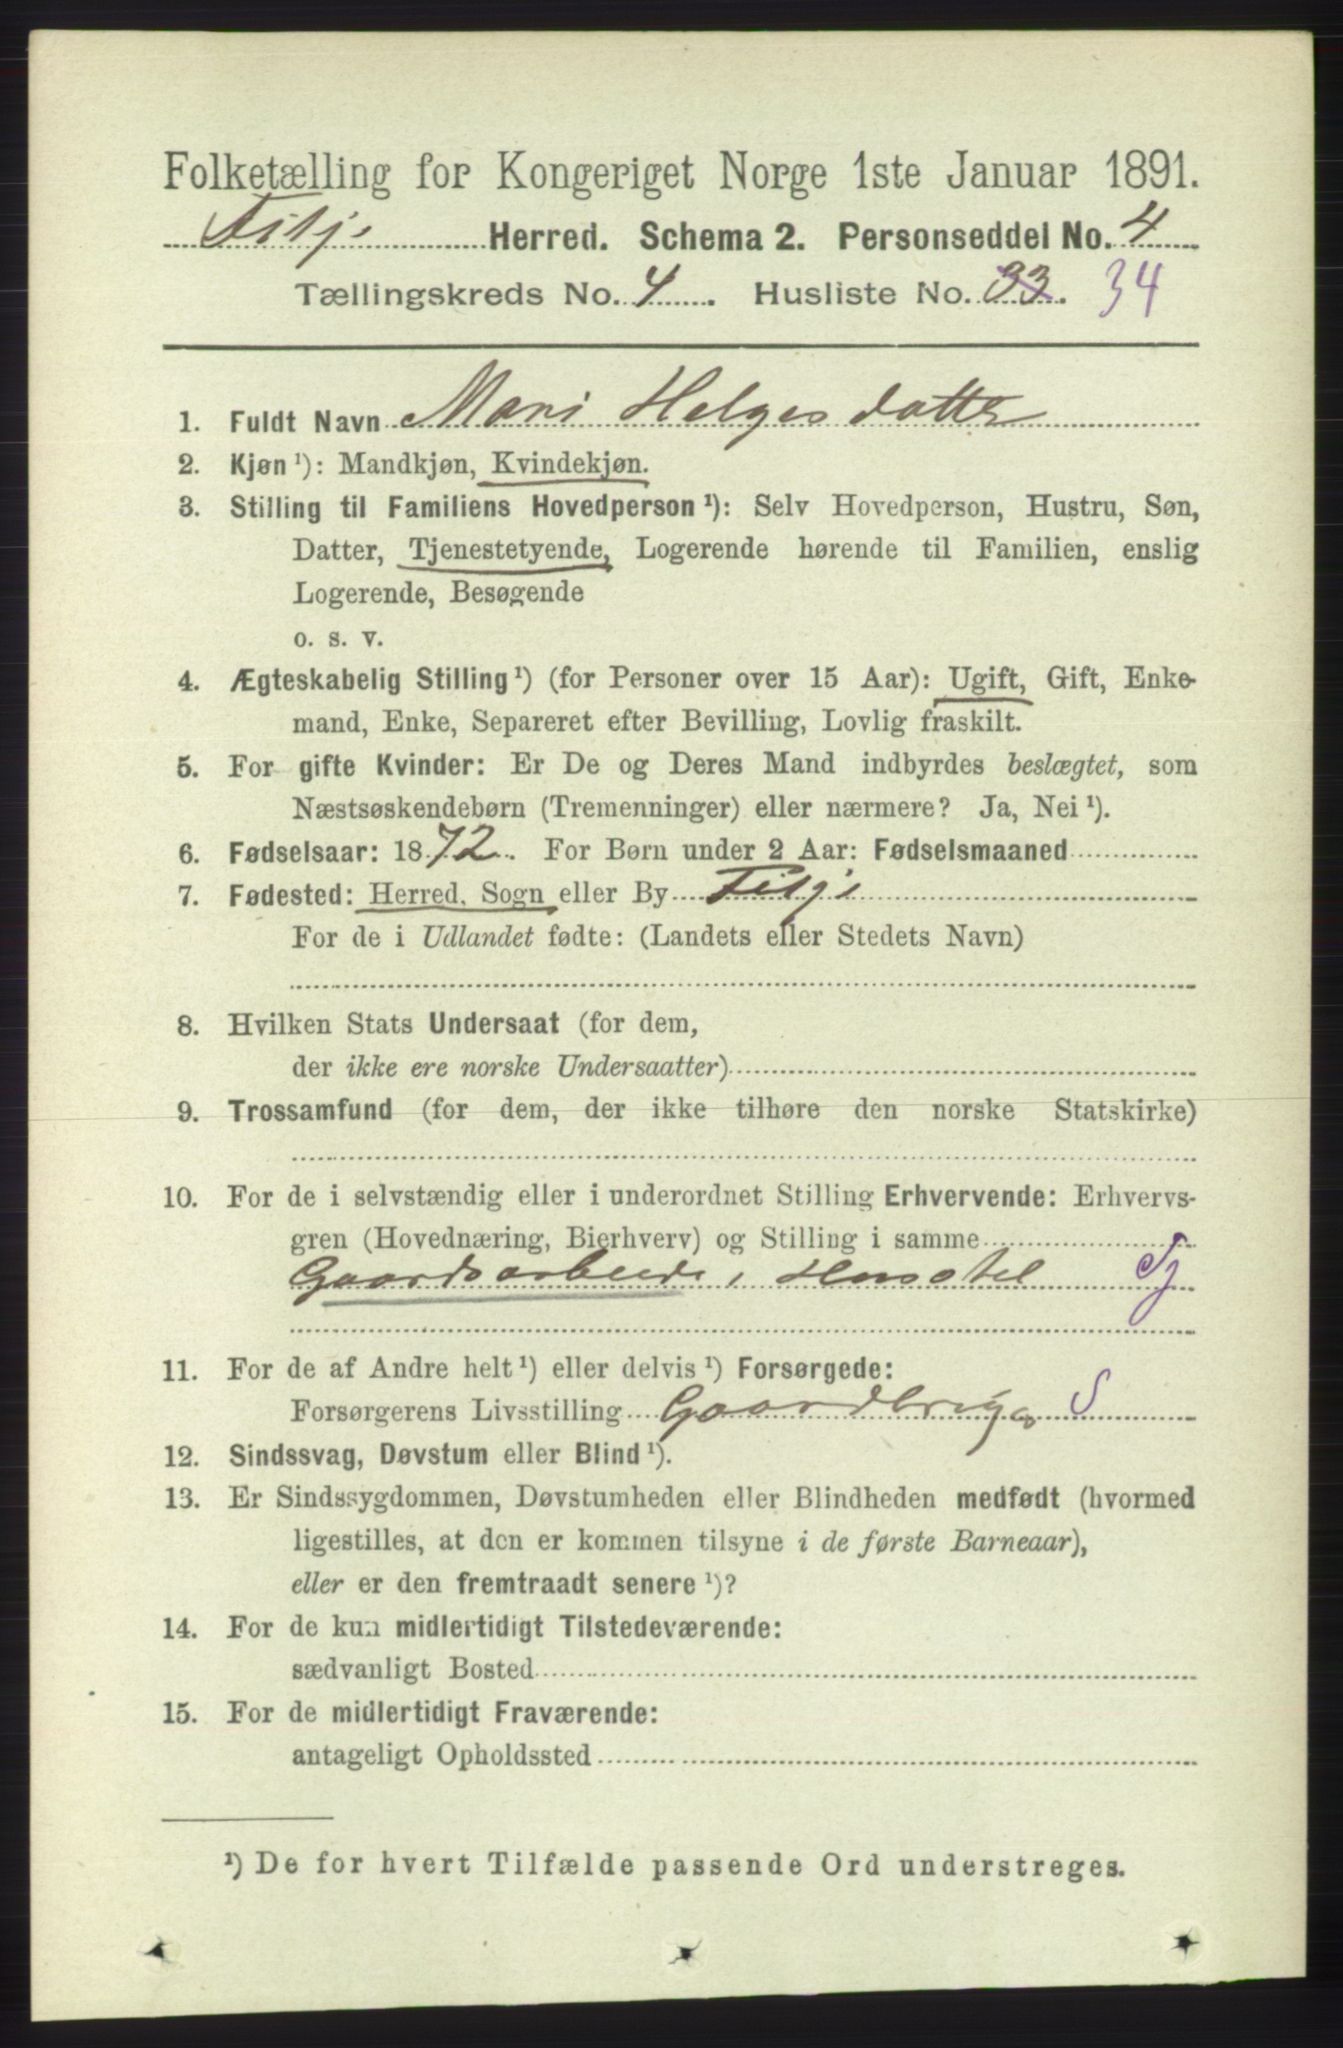 Folketælling for Kongeriget Norge 1ste Januar 1891.
Fitje Herred. Schema 2. Personseddel No. 4
Tællingskreds No. 4. Husliste No. 33. 34
1. Fuldt Navn Mari Helgesdatter
2. Kjøn ¹): Mandkjøn, Kvindekjøn.
3. Stilling til Familiens Hovedperson ¹): Selv Hovedperson, Hustru, Søn,
Datter, Tjenestetyende, Logerende hørende til Familien, enslig
Logerende, Besøgende
o. s. v.
4. Ægteskabelig Stilling ¹) (for Personer over 15 Aar): Ugift, Gift, Enke-
mand, Enke, Separeret efter Bevilling, Lovlig fraskilt.
5. For gifte Kvinder: Er De og Deres Mand indbyrdes beslægtet, som
Næstsøskendebørn (Tremenninger) eller nærmere? Ja, Nei ¹).
6. Fødselsaar: 1872. For Børn under 2 Aar: Fødselsmaaned
7. Fødested: Herred, Sogn eller By Fitje
For de i Udlandet fødte: (Landets eller Stedets Navn)
8. Hvilken Stats Undersaat (for dem,
der ikke ere norske Undersaatter)
9. Trossamfund (for dem, der ikke tilhøre den norske Statskirke)
10. For de i selvstændig eller i underordnet Stilling Erhvervende: Erhvervs-
gren (Hovednæring, Bierhverv) og Stilling i samme
Gaardsarbeide, Husstel Tj
11. For de af Andre helt ¹) eller delvis ¹) Forsørgede:
Forsørgerens Livsstilling Gaardbruger S
12. Sindssvag, Døvstum eller Blind ¹).
13. Er Sindssygdommen, Døvstumheden eller Blindheden medfødt (hvormed
ligestilles, at den er kommen tilsyne i de første Barneaar),
eller er den fremtraadt senere ¹)?
14. For de kun midlertidigt Tilstedeværende:
sædvanligt Bosted
15. For de midlertidigt Fraværende:
antageligt Opholdssted
¹) De for hvert Tilfælde passende Ord understreges.